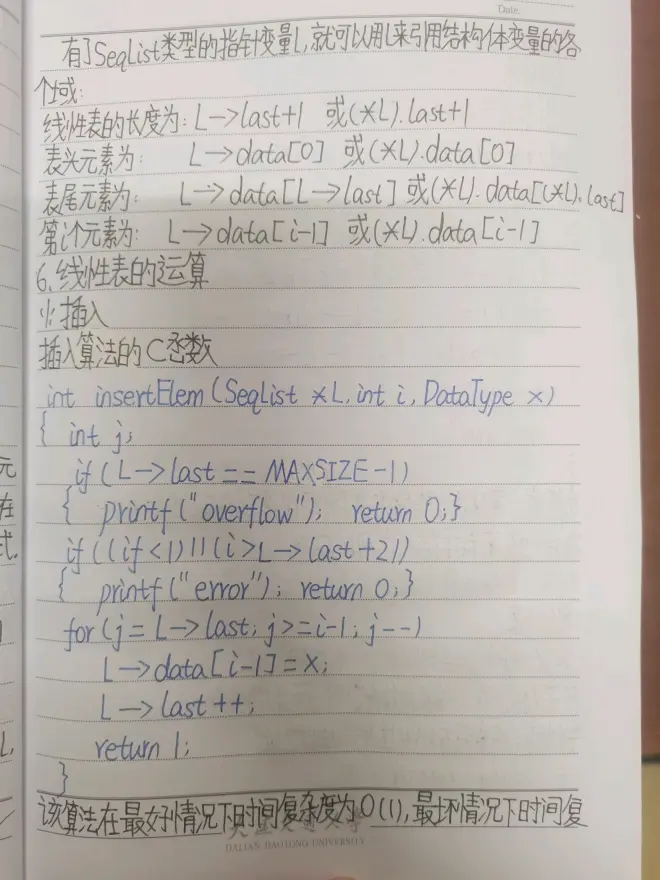 Date.
有了SeqList类型的指针变量L,就可以用L来引用结构体变量的各
个域:
线性表的长度为: L→last+1 或(*L).last+1
表头元素为: L→data[0] 或(*L).data[0]
表尾元素为: L→data[L→last] 或(*L).data[(*L).last]
第i个元素为: L→data[i-1] 或(*L).data[i-1]
6.线性表的运算
⑴插入
插入算法的C函数
int insertElem(SeqList *L,int i,DataType x)
{ int j;
if(L→last==MAXSIZE-1)
{ printf("overflow"); return 0;}
if((if<1)||(i>L→last+2))
{ printf("error"); return 0;}
for(j=L→last;j>=i-1;j--)
L→data[i-1]=x;
L→last++;
return 1;
}
该算法在最好情况下时间复杂度为O(1),最坏情况下时间复
DALIAN JIAOTONG UNIVERSITY